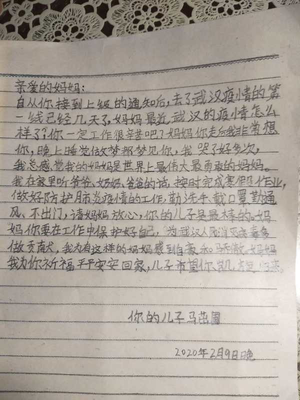 亲爱的妈妈:
自从你接到上级的通知后,去了武汉疫情的第
一线已经几天了,妈妈最近武汉的疫情怎么
样了?你一定工作很辛苦吧?妈妈你走后我非常想
你,晚上睡觉做梦都梦见你,我哭了好多次,
我总感觉我的妈妈是世界上最伟大最勇敢的妈妈。
我在家里听爷爷、奶奶、爸爸的话,按时完成寒假作业,
做好防护肺炎疫情的工作,勤洗手、戴口罩、勤通
风、不出门,请妈妈放心,你的儿子是最棒的,妈
妈你要在工作中保护好自己,为武汉人民消灭病毒多
做贡献,我为有这样的妈妈感到自豪和骄傲,妈妈
我为你祈福平平安安回家,儿子希望你凯旋归来。
你的儿子马
2020年2月9日晚